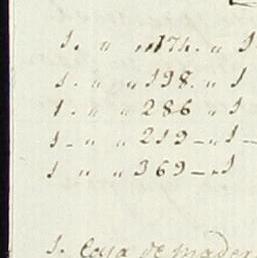 1. " " 174. " 1
1. " " 198. " 1
1. " " 286 " 1
1 - " " 219 - " 1 -
1. " " 369 - " 1
1. Caja de mader